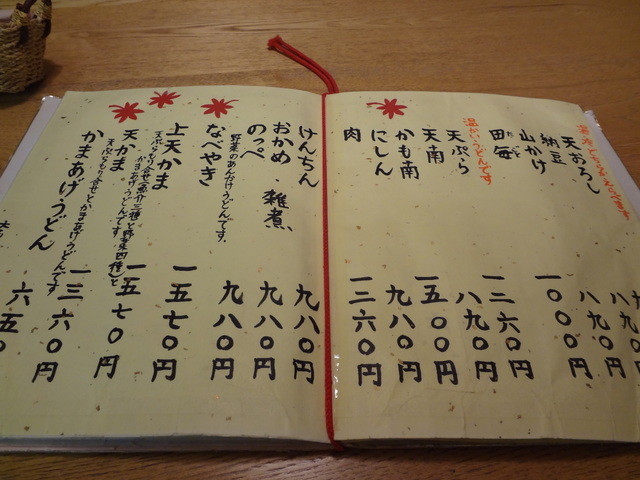 天おろし
納豆 八九〇円
山かけ 八九〇円
田毎 一〇〇〇円
温かいうどんです
天ぷら 一三六〇円
天南 八九〇円
かも南 一五〇〇円
にしん 九八〇円
肉 一三六〇円
けんちん 九八〇円
おかめ・雑煮 九八〇円
のっぺ 九八〇円
野菜のあんかけうどんです。
なべやき 一五七〇円
上天かま 一五七〇円
天ぷらもり合せ(魚介三種と野菜四種)と
かまあげうどんです
天かま 一三六〇円
天ぷらもり合せとかまあげうどんです
かまあげうどん 六五〇